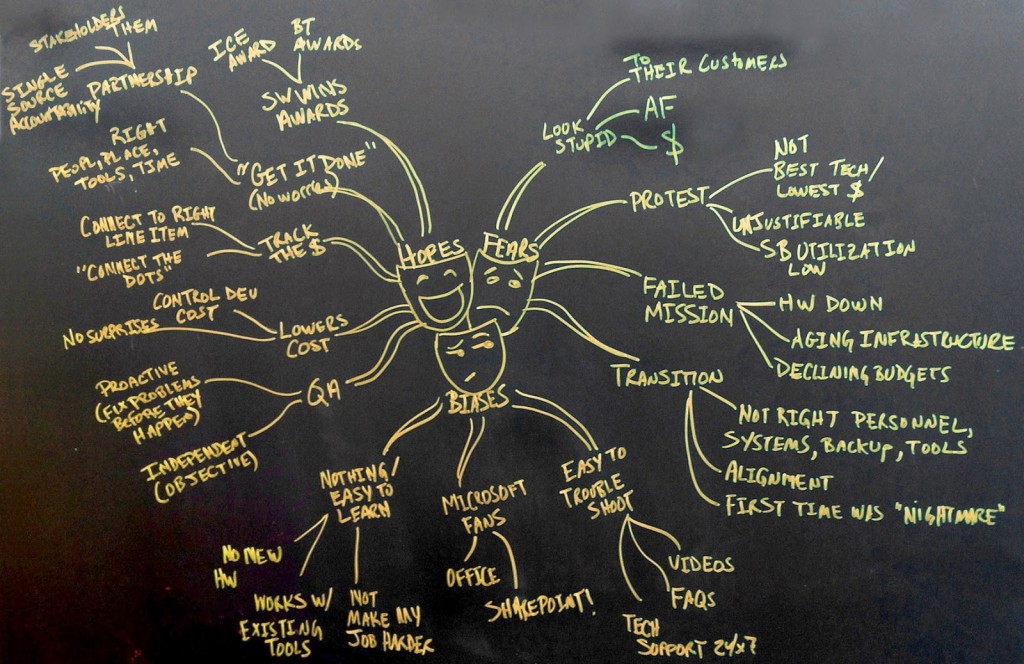 STAKEHOLDERS
THEM
SINGLE
SOURCE
ACCOUNTABILITY
PARTNERSHIP
RIGHT
PEOPLE, PLACE,
TOOLS, TIME
"GET IT DONE"
(NO WORRIES)
ICE
AWARD
BT
AWARDS
SW WINS
AWARDS
CONNECT TO RIGHT
LINE ITEM
"CONNECT THE
DOTS"
TRACK
THE $
CONTROL DEV
COST
NO SURPRISES
LOWERS
COST
PROACTIVE
(FIX PROBLEMS
BEFORE THEY
HAPPEN)
INDEPENDENT
(OBJECTIVE)
QA
HOPES
FEARS
BIASES
LOOK
STUPID
TO
THEIR CUSTOMERS
AF
$
PROTEST
NOT
BEST TECH/
LOWEST $
UNJUSTIFIABLE
SB UTILIZATION
LOW
FAILED
MISSION
HW DOWN
AGING INFRASTRUCTURE
DECLINING BUDGETS
TRANSITION
NOT RIGHT PERSONNEL,
SYSTEMS, BACKUP, TOOLS
ALIGNMENT
FIRST TIME WAS "NIGHTMARE"
NOTHING/
EASY TO
LEARN
NO NEW
HW
WORKS W/
EXISTING
TOOLS
NOT
MAKE MY
JOB HARDER
MICROSOFT
FANS
OFFICE
SHAREPOINT!
EASY TO
TROUBLE
SHOOT
VIDEOS
FAQS
TECH
SUPPORT 24x7